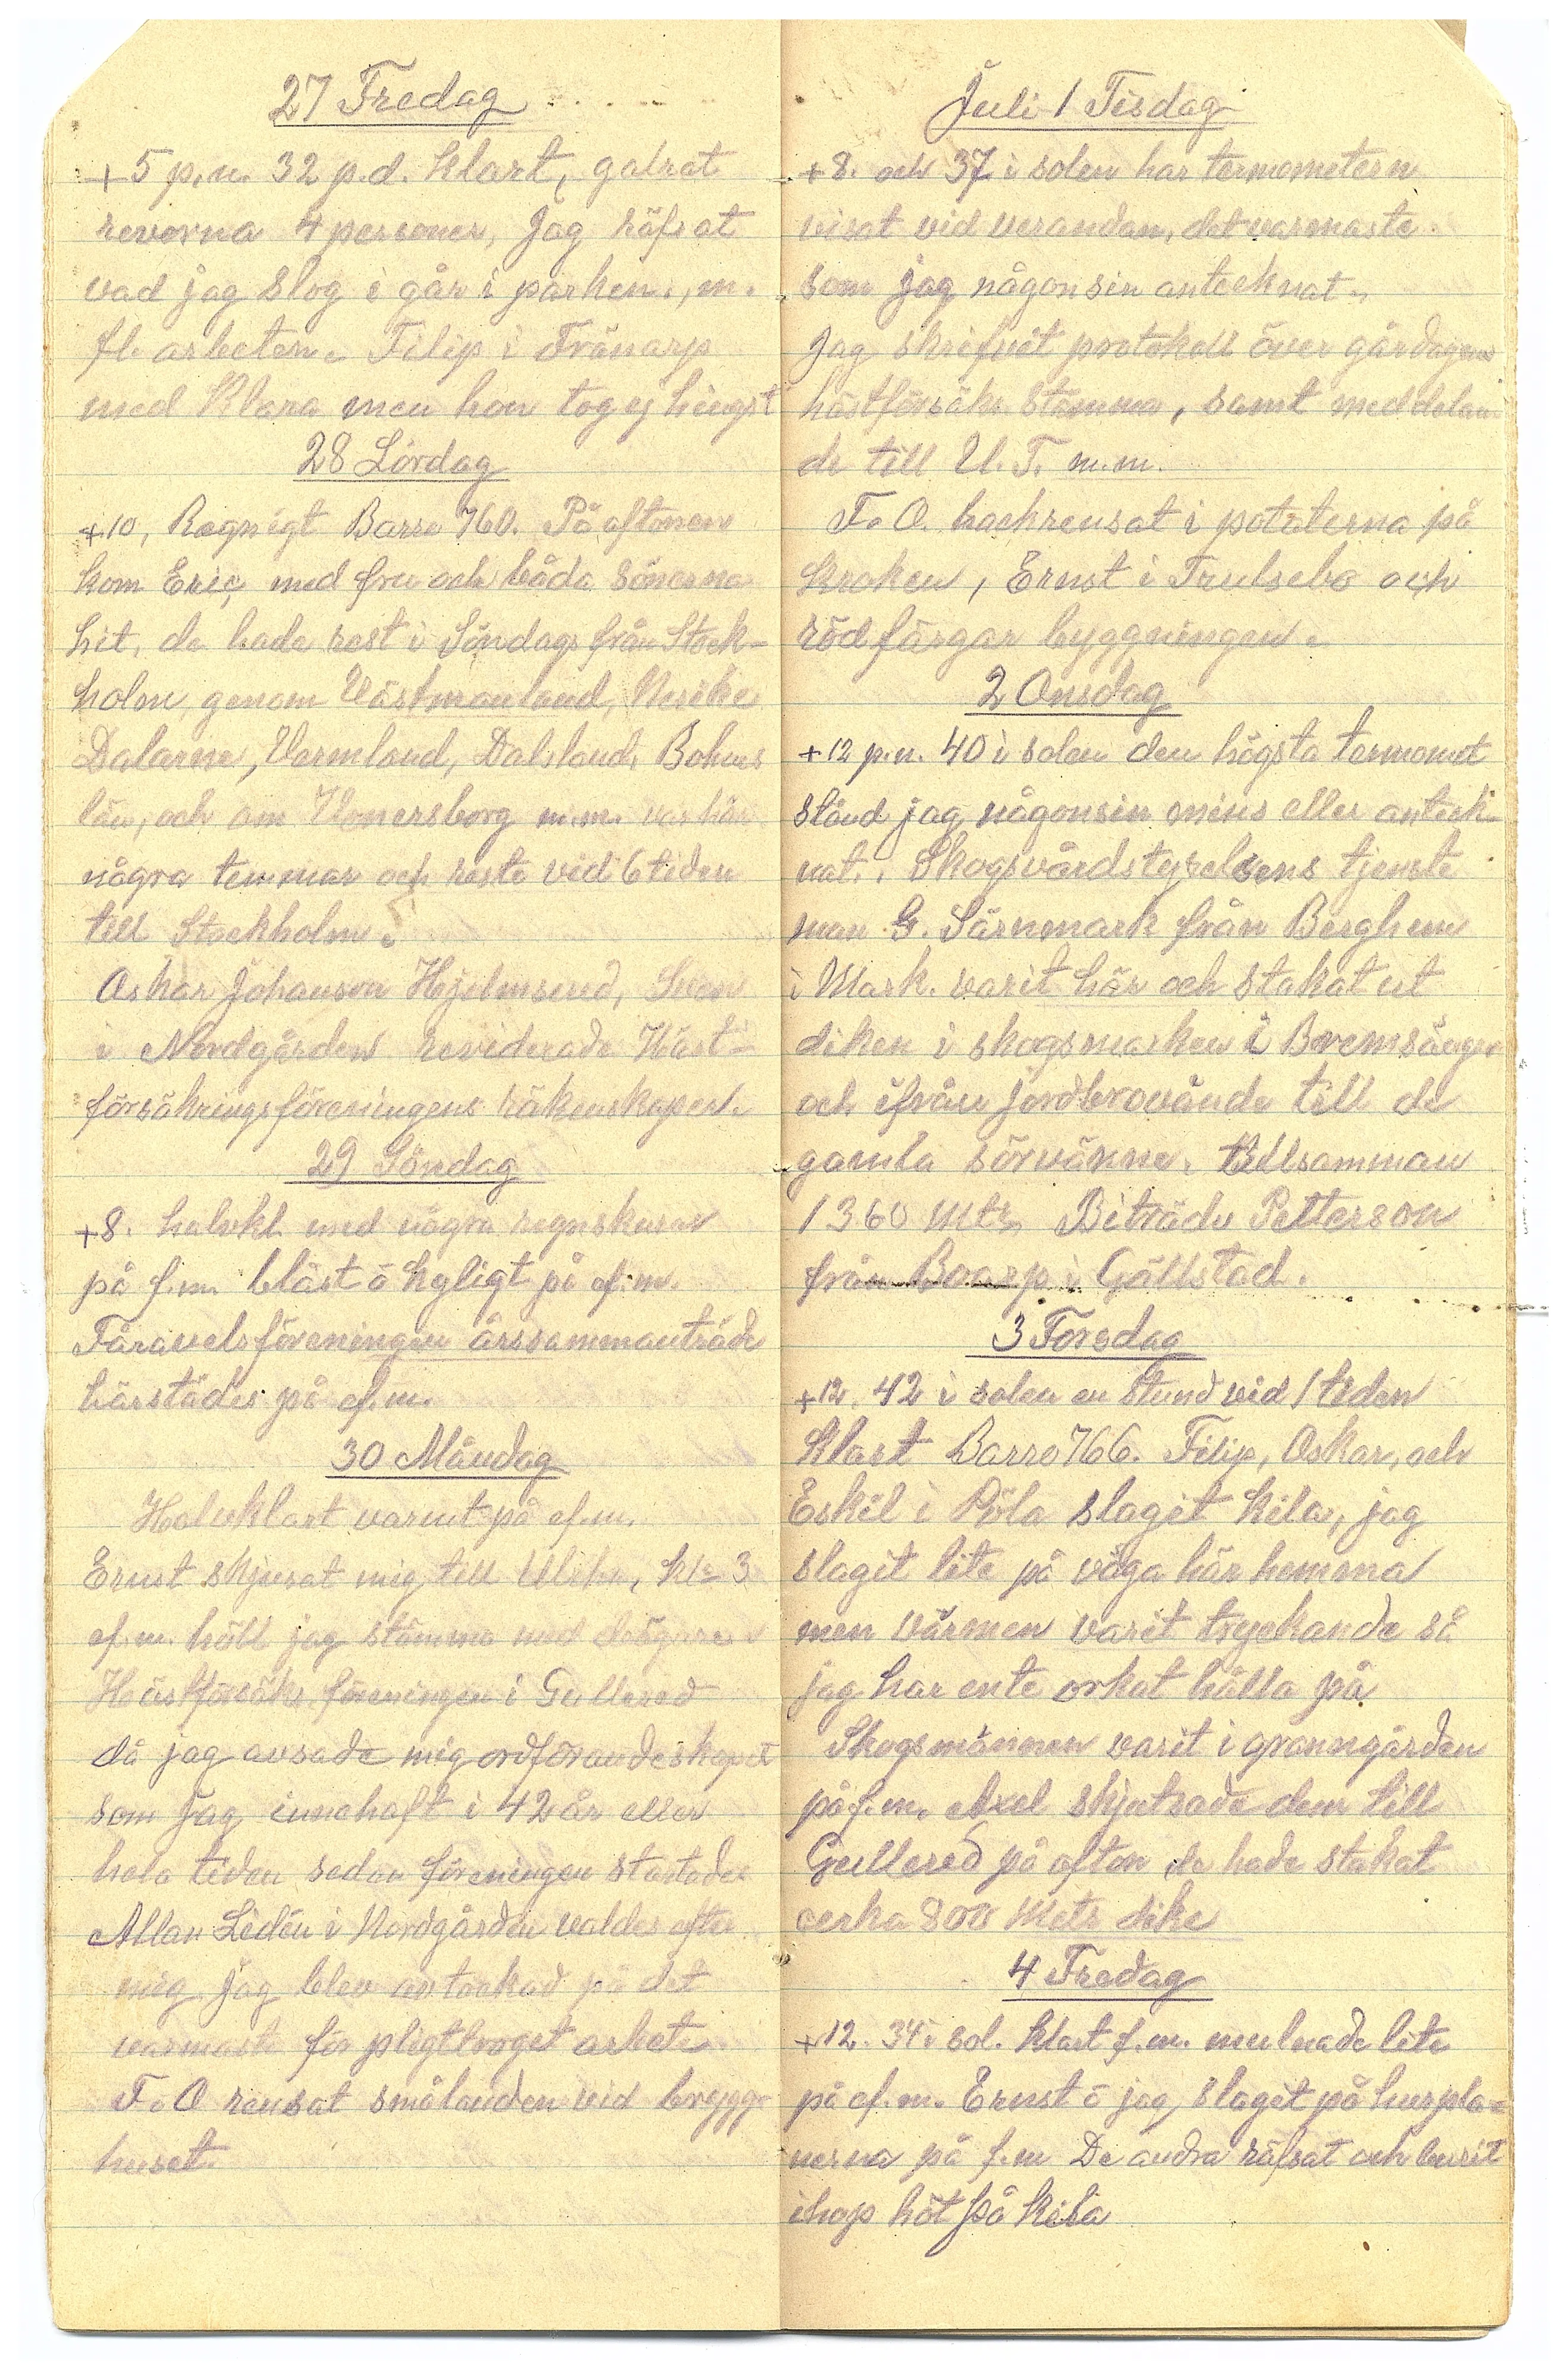 27 Fredag
+5 p.n. 32 p.d. klart, galrat
revorna 4 personer, Jag räfsat
vad jag slog i går i parken, m.
fl. arbeten. Filip i Tränarp
med Klara men hon tog ej hingst
28 Lördag
+10, Regnigt Barro 760. På aftonen
kom Eric med fru och båda sönerna
hit, de hade rest i Söndags från Stock-
holm, genom Västmanland, Nerike
Dalarne, Vermland, Dalsland, Bohus
län, och om Venersborg m.m. var här
några temmar och reste vid 6 tiden
till Stockholm.
Oskar Johanson Hjelmsered, Sven
i Nordgården reviderade Häst-
försäkringsföreningens räkenskaper.
29 Söndag
+8. halvkl. med några regnskurar
på f.m. blåst o kyligt på ef.m.
Fåravelsföreningen årssammanträde
härstädes på ef.m.
30 Måndag
Halvklart varmt på ef.m.
Ernst skjusat mig till Ulrhn, kl. 3
ef.m. höll jag stämma med delägare
Hästförsäkr. föreningen i Gullered
då jag avsade mig ordförandeskapet
som jag innehaft i 42 år eller
hela tiden sedan föreningen startades
Allan Lidén i Nordgården valdes efter
mig jag blev avtackad på det
varmaste för pligttroget arbete
F. O rensat smålanden vid brygg-
huset.
Juli 1 Tisdag
+8. och 37 i solen har termometern
visat vid verandan, det varmaste
som jag någonsin antecknat.
Jag skrifvit protokoll över gårdagens
hästförsäkr. stämma, samt meddelan-
de till U. T. m.m.
F. O. hackrensat i potaterna på
kroken, Ernst i Trulsebo och
rödfärgar byggningen.
2 Onsdag
+12 p.n. 40 i solen den högsta termomet
stånd jag någonsin mins eller anteck-
nat. Skogsvårdstyrelsens tjenste
man G. Särnmark från Berghem
i Mark. varit här och stakat ut
diken i skogsmarken i Bremsänger
och ifrån jordbrovände till de
gamla sörvänne. Tillsamman
1360 Mtr, Biträde Petterson
från Boarp i Gällstad.
3 Torsdag
+12. 42 i solen en stund vid 1 tiden
klart Barro 766. Filip, Oskar, och
Eskil i Pöla slagit kila, jag
slagit lite på väga här hemma
men värmen varit tryckande så
jag har ente orkat hålla på
Skogsmännen varit i granngården
på f.m. Axel skjutsade dem till
Gullered på afton de hade stakat
cerka 800 Metr dike
4 Fredag
+12. 34 i sol. klart f.m. mulnade lite
på ef.m. Ernst o jag slagit på huspla-
nerna på f.m De andra räfsat och burit
ihop höt på kila